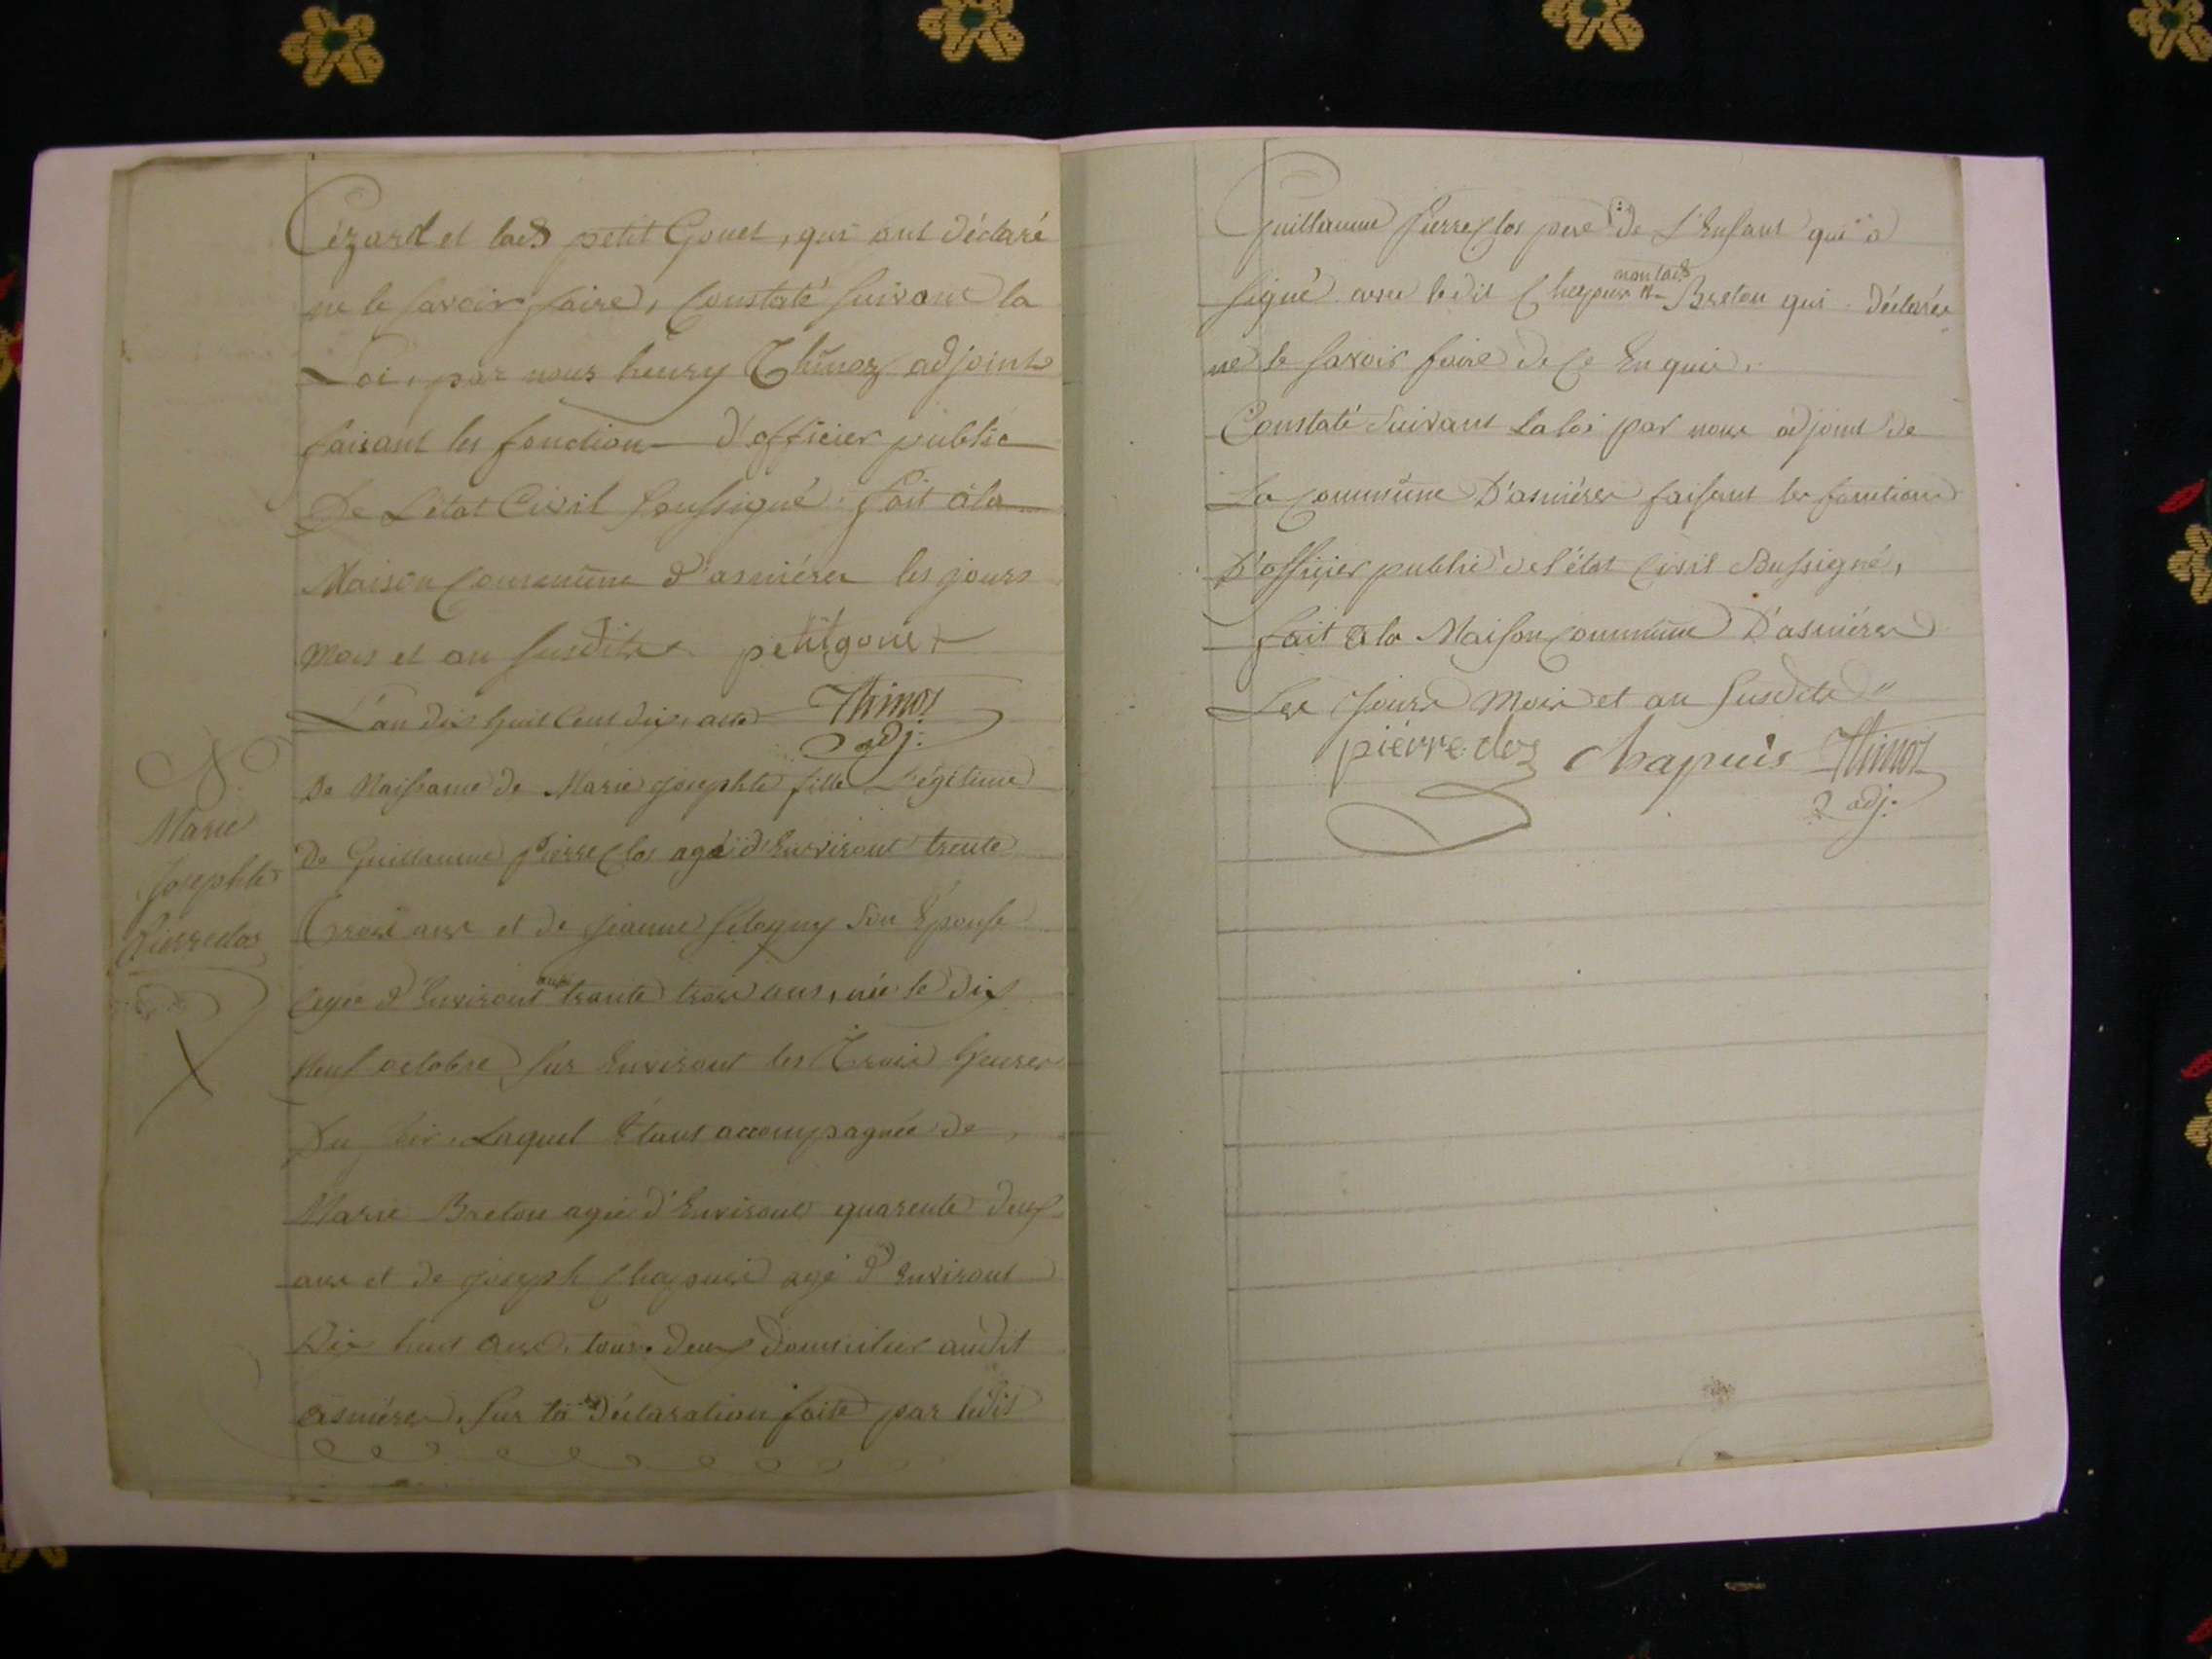 Cézard et lad petit Gonet, qui ont déclaré
ne le savoir faire, Constaté suivant la
Loi, par nous henry Thinoz adjoint
faisant les fonction d'officier public
De L'état Civil soussigné. fait à la
Maison Commune d'asniéres les jours
mois et an susdits petitgonet
L'an dix huit Cent dix, acte Thinoz
adj:
N.
Marie
Josephte
Pierreclos
De Naissance de Marie josephte fille Légitime
De Guillaume Pierre Clos agé d'Environt trente
Trois ans et de jeanne son Épouse
agée d'Environt aussi trante trois ans, née le dix
Neuf octobre sur Environt les Trois heures
Du soir. Laquel Etant accompagnée de
Marie Breton agée d'Environt quarente deux
ans et de joseph Chapuis agé d'Environt
Dix huit ans, tous deux Domicilier audit
asniéres, sur la déclaration faite par ledit
Guillaume Pierre Clos pere de L'Enfant qui a
signé avec ledit Chapuis non lad Breton qui déclarée
ne le savoir faire de Ce Enquis.
Constaté Suivant La loi par nous adjoint de
La Commune D'asniéres faisant les fonctions
D'officier public de l'état Civil Soussigné,
fait à la Maison Commune D'asniéres
Les Jours Mois et an susdits
pierre.cloz chapuis Thinoz
adj.